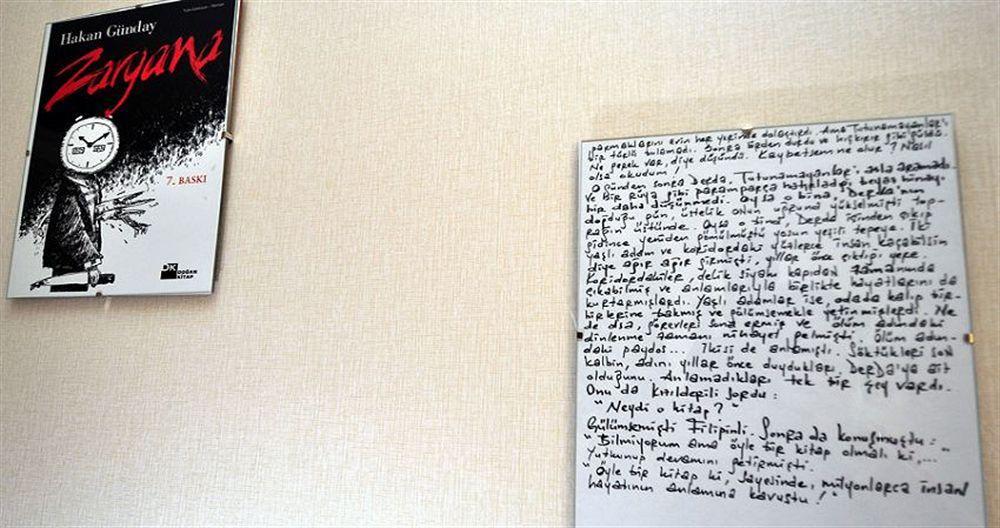 Hakan Günday
Zargana
7. BASKI
DK
DOĞAN
KİTAP
parmaklarını evin her yerinde dolaştırdı. Ama Tutunamayanlar'ı
bir türlü bulamadı. Sonra birden durdu ve hıçkırır gibi güldü.
Ne gerek var, diye düşündü. Kaybetsem ne olur? Nasıl
olsa okudum!
O günden sonra Derda, Tutunamayanlar'ı asla aramadı
ve bir rüya gibi paramparça hatırladığı beyaz binayı
bir daha düşünmedi. Oysa o bina, Derda'nın
doğduğu gün, üstelik onun uğruna yükselmişti top-
rağın üstünde. Oysa o bina, Derda içinden çıkıp
gidince yeniden gömülmüştü yosun yeşili tepeye. İki
yaşlı adam ve koridordaki yüzlerce insan kaçabilsin
diye ağır ağır girmişti, yıllar önce çıktığı yere.
Koridordakiler, delik siyahı kapıdan zamanında
çıkabilmiş ve anlamlarıyla birlikte hayatlarını da
kurtarmışlardı. Yaşlı adamlar ise, odada kalıp bir-
birlerine bakmış ve gülümsemekle yetinmişlerdi. Ne
de olsa, görevleri sona ermiş ve ölüm adındaki
dinlenme zamanı nihayet gelmişti. Ölüm adın-
daki paydos... İkisi de anlamıştı. Söktükleri son
kalbin, adını yıllar önce duydukları, Derda'ya ait
olduğunu. Anlamadıkları tek bir şey vardı.
Onu da Kızılderili sordu:
"Neydi o kitap?"
Gülümsemişti Filipinli. Sonra da konuşmuştu:
"Bilmiyorum ama öyle bir kitap olmalı ki,..."
Yutkunup devamını getirmişti.
"Öyle bir kitap ki, sayesinde, milyonlarca insan
hayatının anlamına kavuştu!"